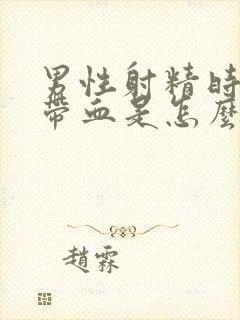 男性射精時
帶血是怎麼
趙霖